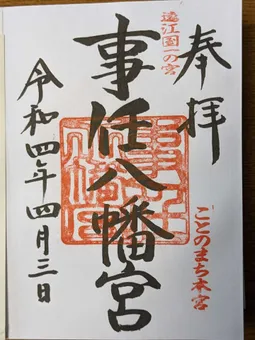 奉拝
遠江國一の宮
ことのまち本宮
事任八幡宮
令和四年四月三日